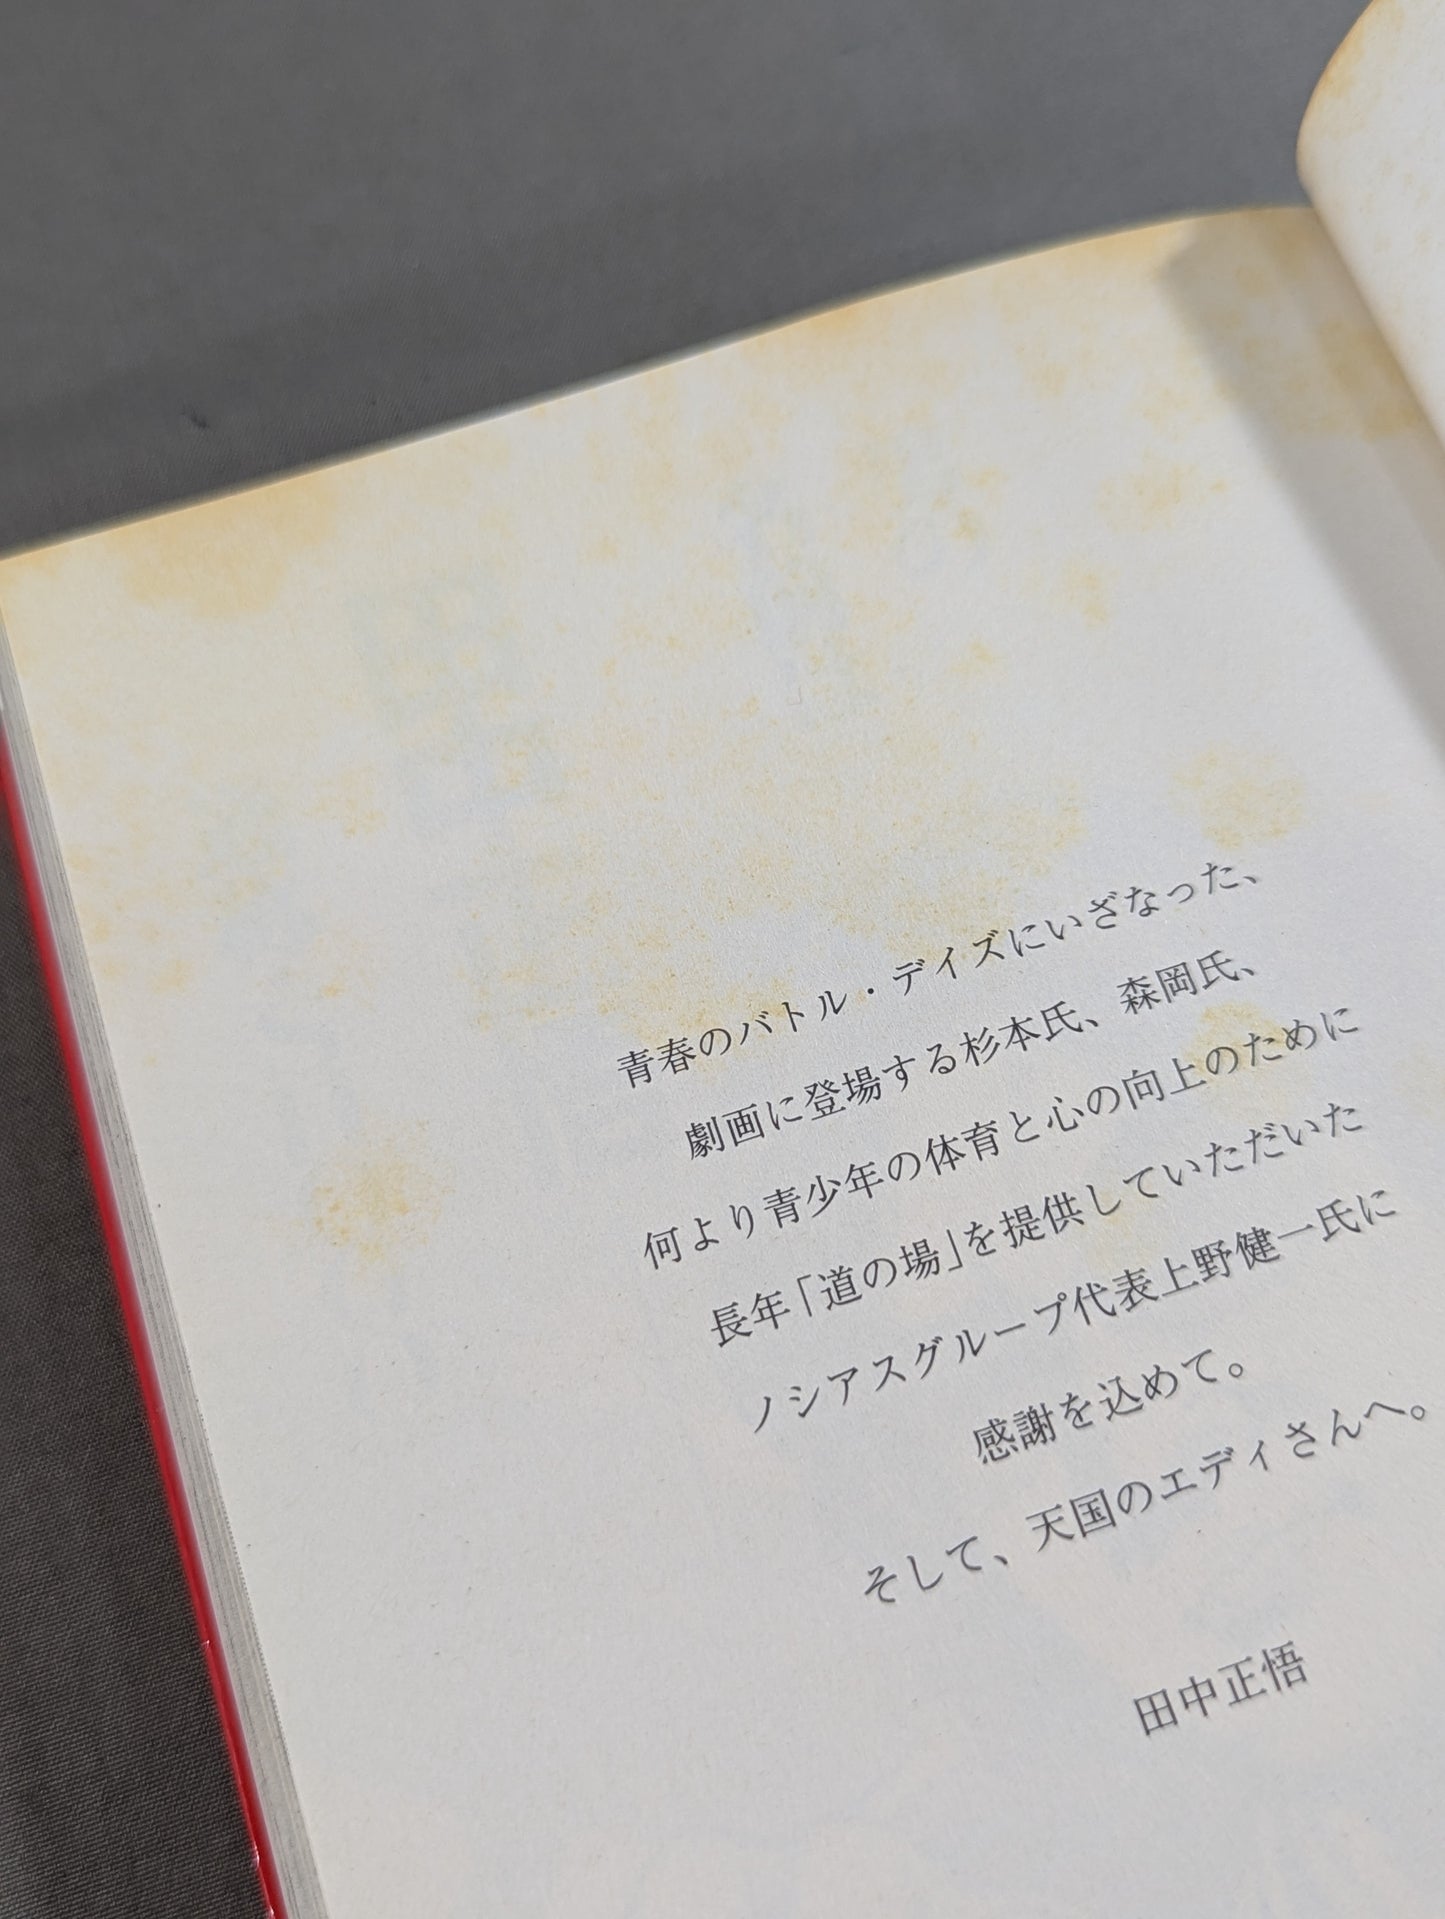 青春のバトル・デイズにいざなった、
劇画に登場する杉本氏、森岡氏、
何より青少年の体育と心の向上のために
長年「道の場」を提供していただいた
ノシアスグループ代表上野健一氏に
感謝を込めて。
そして、天国のエディさんへ。
田中正悟